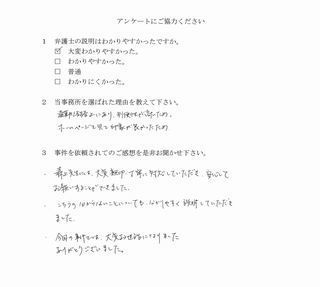 アンケートにご協力ください
1 弁護士の説明はわかりやすかったですか。
☑ 大変わかりやすかった。
□ わかりやすかった。
□ 普通
□ わかりにくかった。
2 当事務所を選ばれた理由を教えて下さい。
にあり、利便性が高いため
ホームページを見て印象が良かったため
3 事件を依頼されてのご感想を是非お聞かせ下さい。
・ 先生には、大変親切、丁寧に対応していただき、安心して
お願いすることができました。
・ こちらの分からないことについても、分かりやすく説明していただき
ました。
・ 今回の事件では、大変お世話になりました
ありがとうございました。